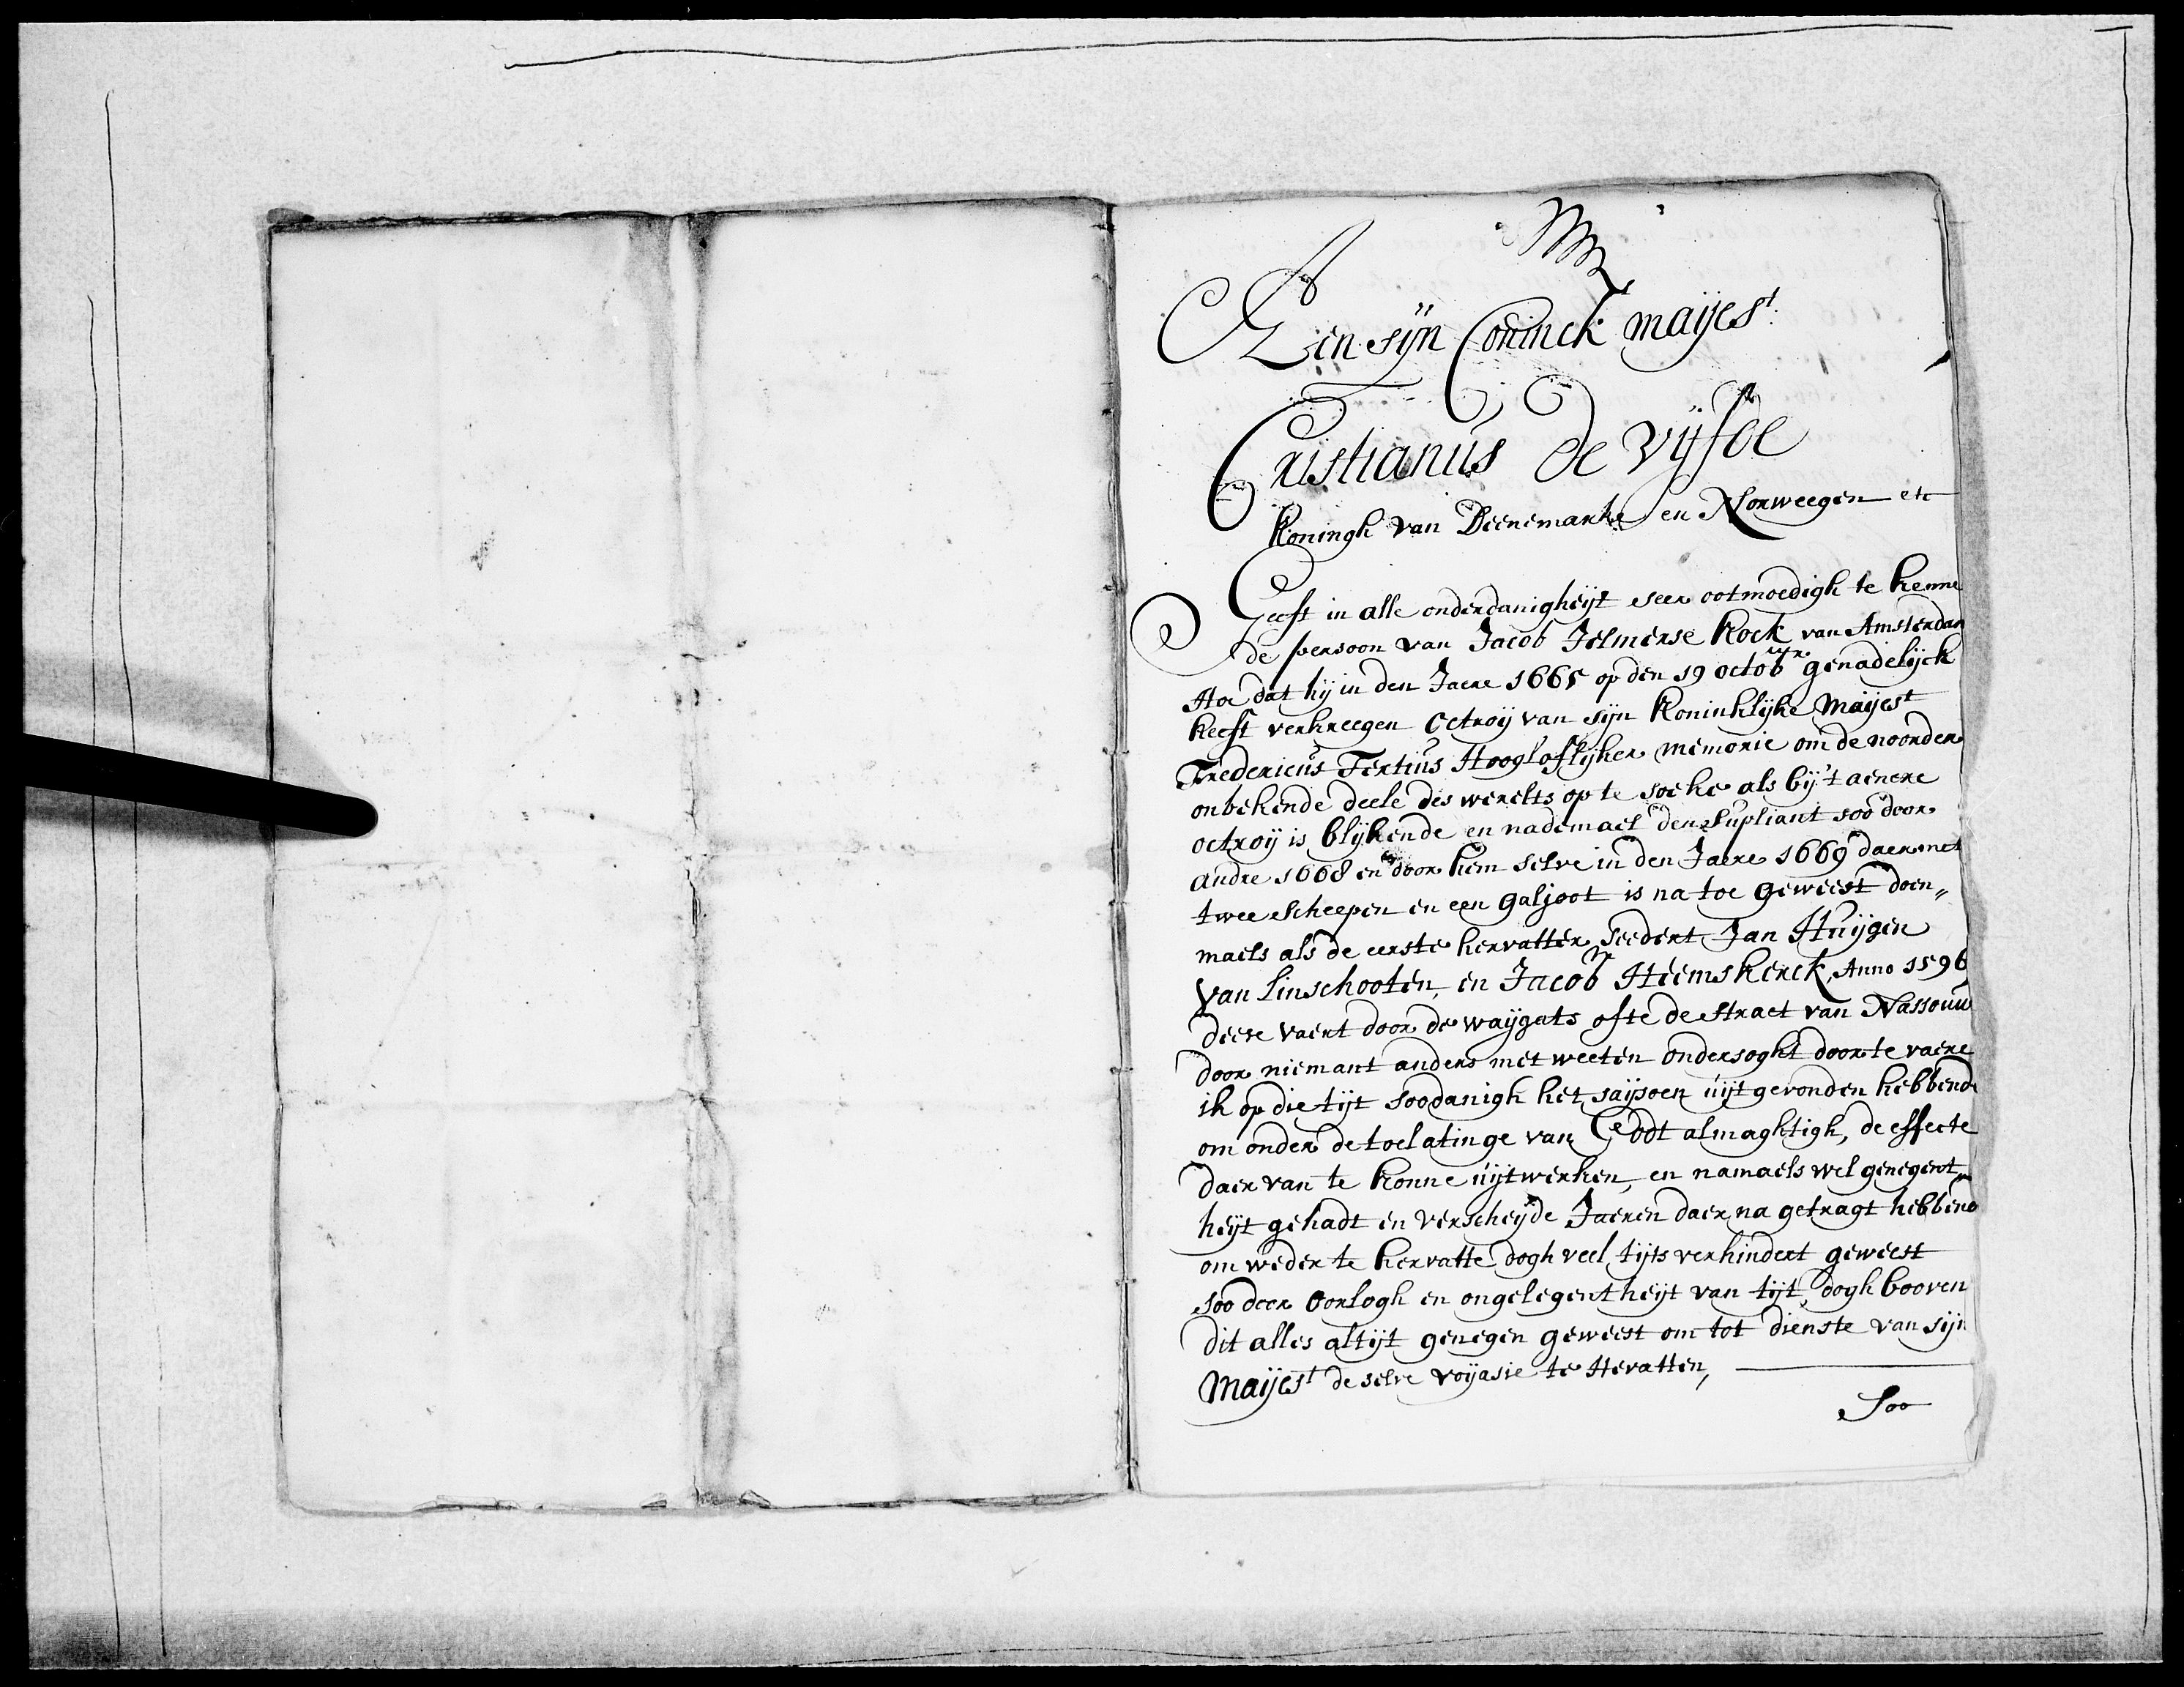 Aen sijn Coninck maijest:
Cristianus de vijfde
Koningh van Deenemarke en Norweegen etc
Geeft in alle onderdanigheijt seer ootmoedigh te kenne
de persoon van Jacob Jelmerse Kock van Amsterdam
Hoe dat hij in den Jaere 1665 op den 19 octob genadelijck
heeft verkreegen Octroij van sijn Koninklijke Maijest
Fredericus Tertius Hooglofflijker memorie om de noorder
onbekende deele des werelts op te soeke als bij't
octroij is blijkende en nademael den Supliant soo door
andre 1668 en door hem selve in den Jaere 1669 daer met
twee scheepen en een galjoot is na toe geweest doen„
maels als de eerste hervatter seedert Jan Huijgen
van Linschooten, en Jacob Heemskerck, Anno 1596
deese vaert door de waijgats ofte de straet van Nassouw
door niemant anders met weeten ondersoght door te vaere
ik op die tijt soodanigh het saijsoen uijt gevonden hebbende
om onder de toelatinge van Godt almaghtigh, de effecte
daer van te konne uijtwerken, en namaels wel genegent„
heijt gehadt en verscheijde Jaeren daer na getragt hebbend
om weder te hervatte dogh veel tijts verhindert geweest
soo deer oorlogh en ongelegentheijt van tijt, dogh booven
dit alles altijt genegen geweest om tot dienste van sijn
Maijest de selve voijasie te Hervatten,
Soo